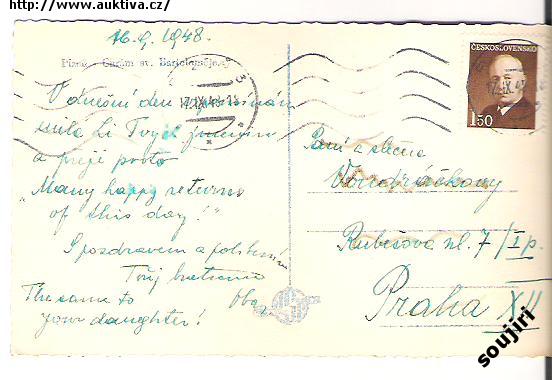 http://www.auktiva.cz/
16.9.1948.
Plzeň - Chrám sv. Bartoloměje
V dnešní den
mila Ti Tvoje jmenin
a přeji proto
"Many happy returns
of this day!"
S pozdravem a políbením
Tvůj bratranec
The same to
your daughter!
ČESKOSLOVENSKO
1.50
17.IX.48
Paní a slečna
Vondráčkovy
Rubešova ul. 7/I p.
Praha XII
soujiri